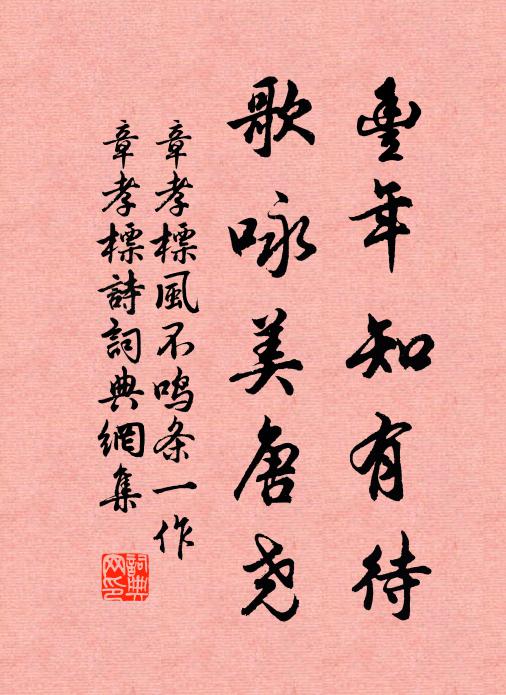 豐年知有待
歌咏美唐尧
章孝標風不鸣条一作
章孝標詩詞典網集
詞典网印